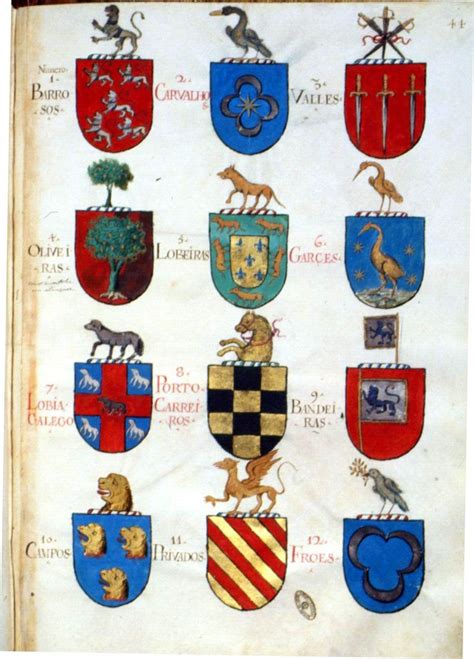 44
1.
BARRO
SOS
2.
CARVALHO
3.
VALLES.
4.
OLIVEI
RAS
5.
LOBEIRAS
6.
GARÇES.
7.
LOBIA
GALEGO
8.
PORTO
CARREI
ROS
9.
BANDEI
RAS
10.
CAMPOS
11.
PRIVADOS
12.
FROES